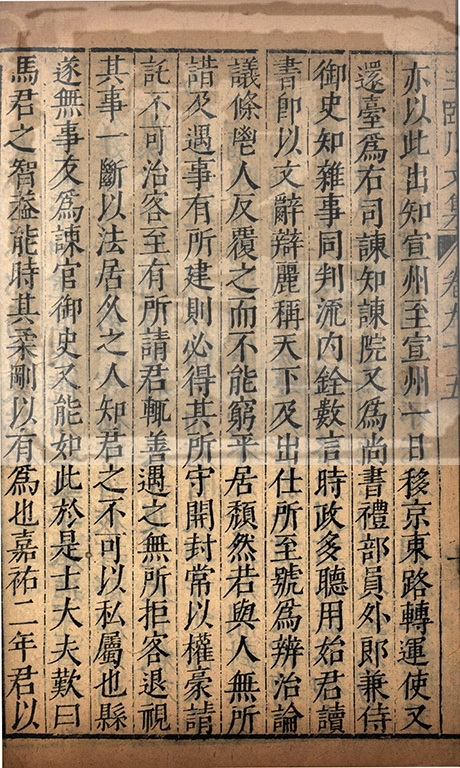 王臨川文集 卷九十五
亦以此出知宣州至宣州一日移京東路轉運使又
還臺爲右司諫知諫院又爲尚書禮部員外郎兼侍
御史知雜事同判流內銓數言時政多聽用始君讀
書即以文辭辯麗稱天下及出仕所至號爲辨治論
議條鬯人反覆之而不能窮平居頹然若與人無所
諎及遇事有所建則必得其所守開封常以權豪請
託不可治客至有所請君輒善遇之無所拒客退視
其事一斷以法居久之人知君之不可以私屬也縣
遂無事及爲諫官御史又能如此於是士大夫歎曰
馬君之智蓋能時其柔剛以有爲也嘉祐二年君以